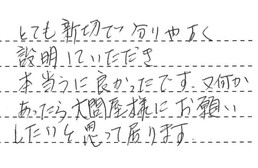 とても新切で分りやすく
説明していただき
本当うに良かったです。又何か
あったら大問屋様にお願い
したいと思って居ります